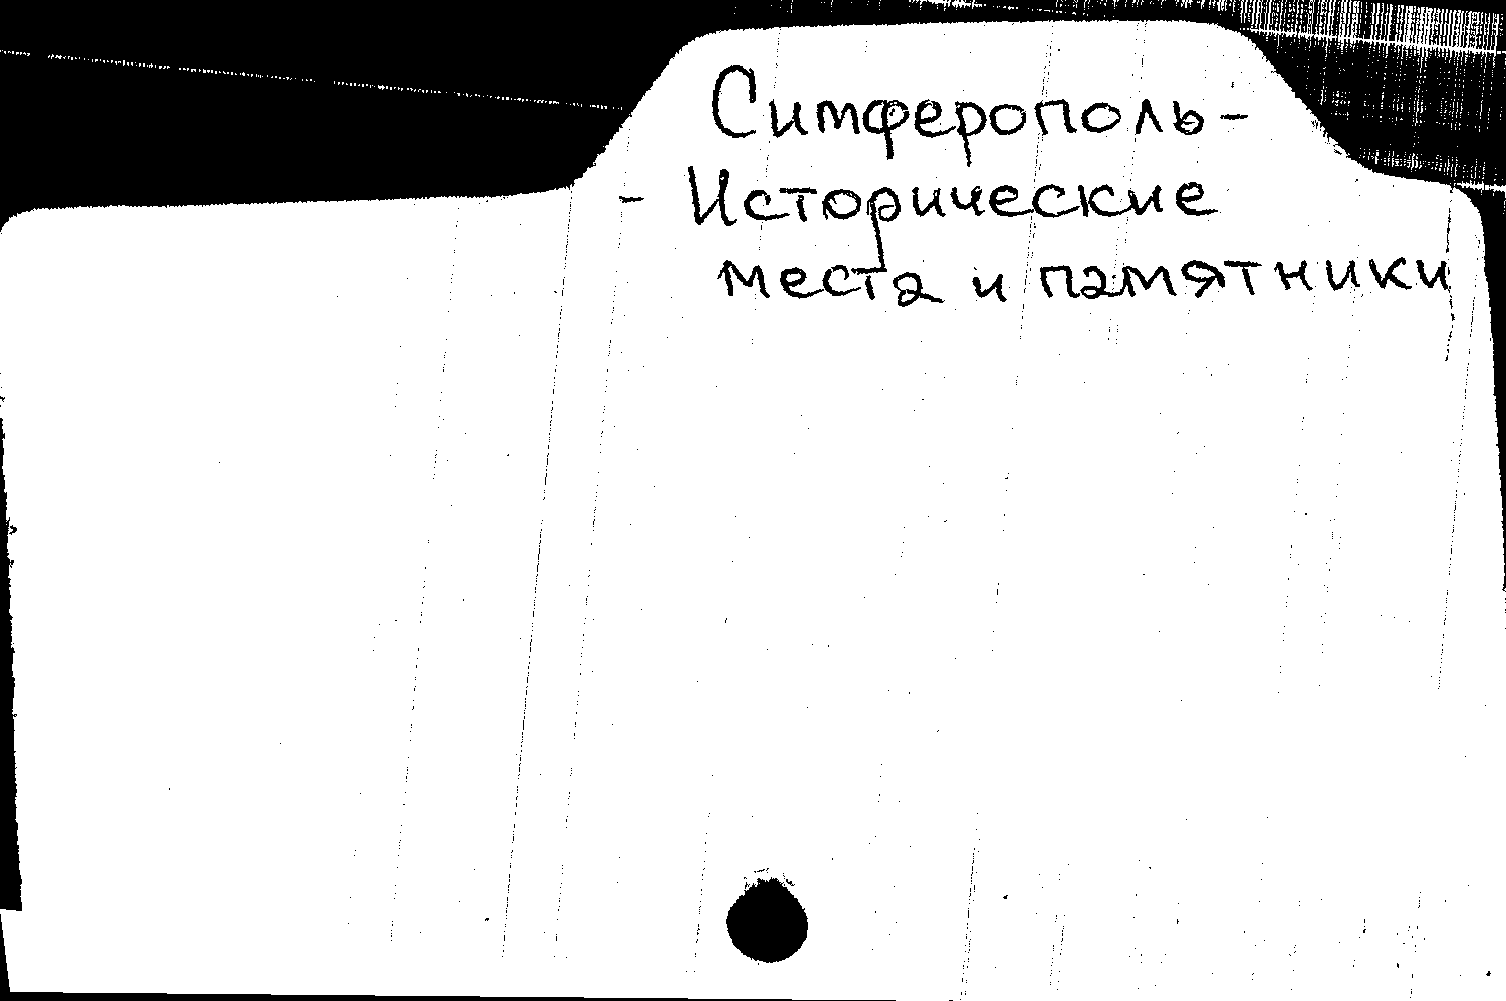 Симферополь-
- Исторические
места и памятники